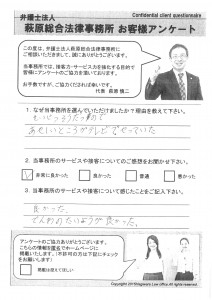 弁護士法人
Confidential client questionnaire
萩原総合法律事務所 お客様アンケート
この度は、弁護士法人萩原総合法律事務所に
ご相談いただきまして、誠にありがとうございます。
当事務所では、接客力・サービス力を強化する目的で
皆様にアンケートのご協力を頂いております。
お手数ですが、ご協力くだされば幸いです。
代表 萩原 慎二
1. なぜ当事務所を選んでいただけましたか？理由を教えて下さい。
2. 当事務所のサービスや接客についてのご感想をお聞かせ下さい。
非常に良かった
良かった
普通
悪かった
3. 当事務所のサービスや接客について感じたことをご記入下さい。
良かった。
でんわのたいおうが良かった。
アンケートのご協力ありがとうございます。
こちらの情報を匿名でホームページに
掲載いたします！（不許可の方は下記にチェック
をお願いします）
掲載は控えてほしい